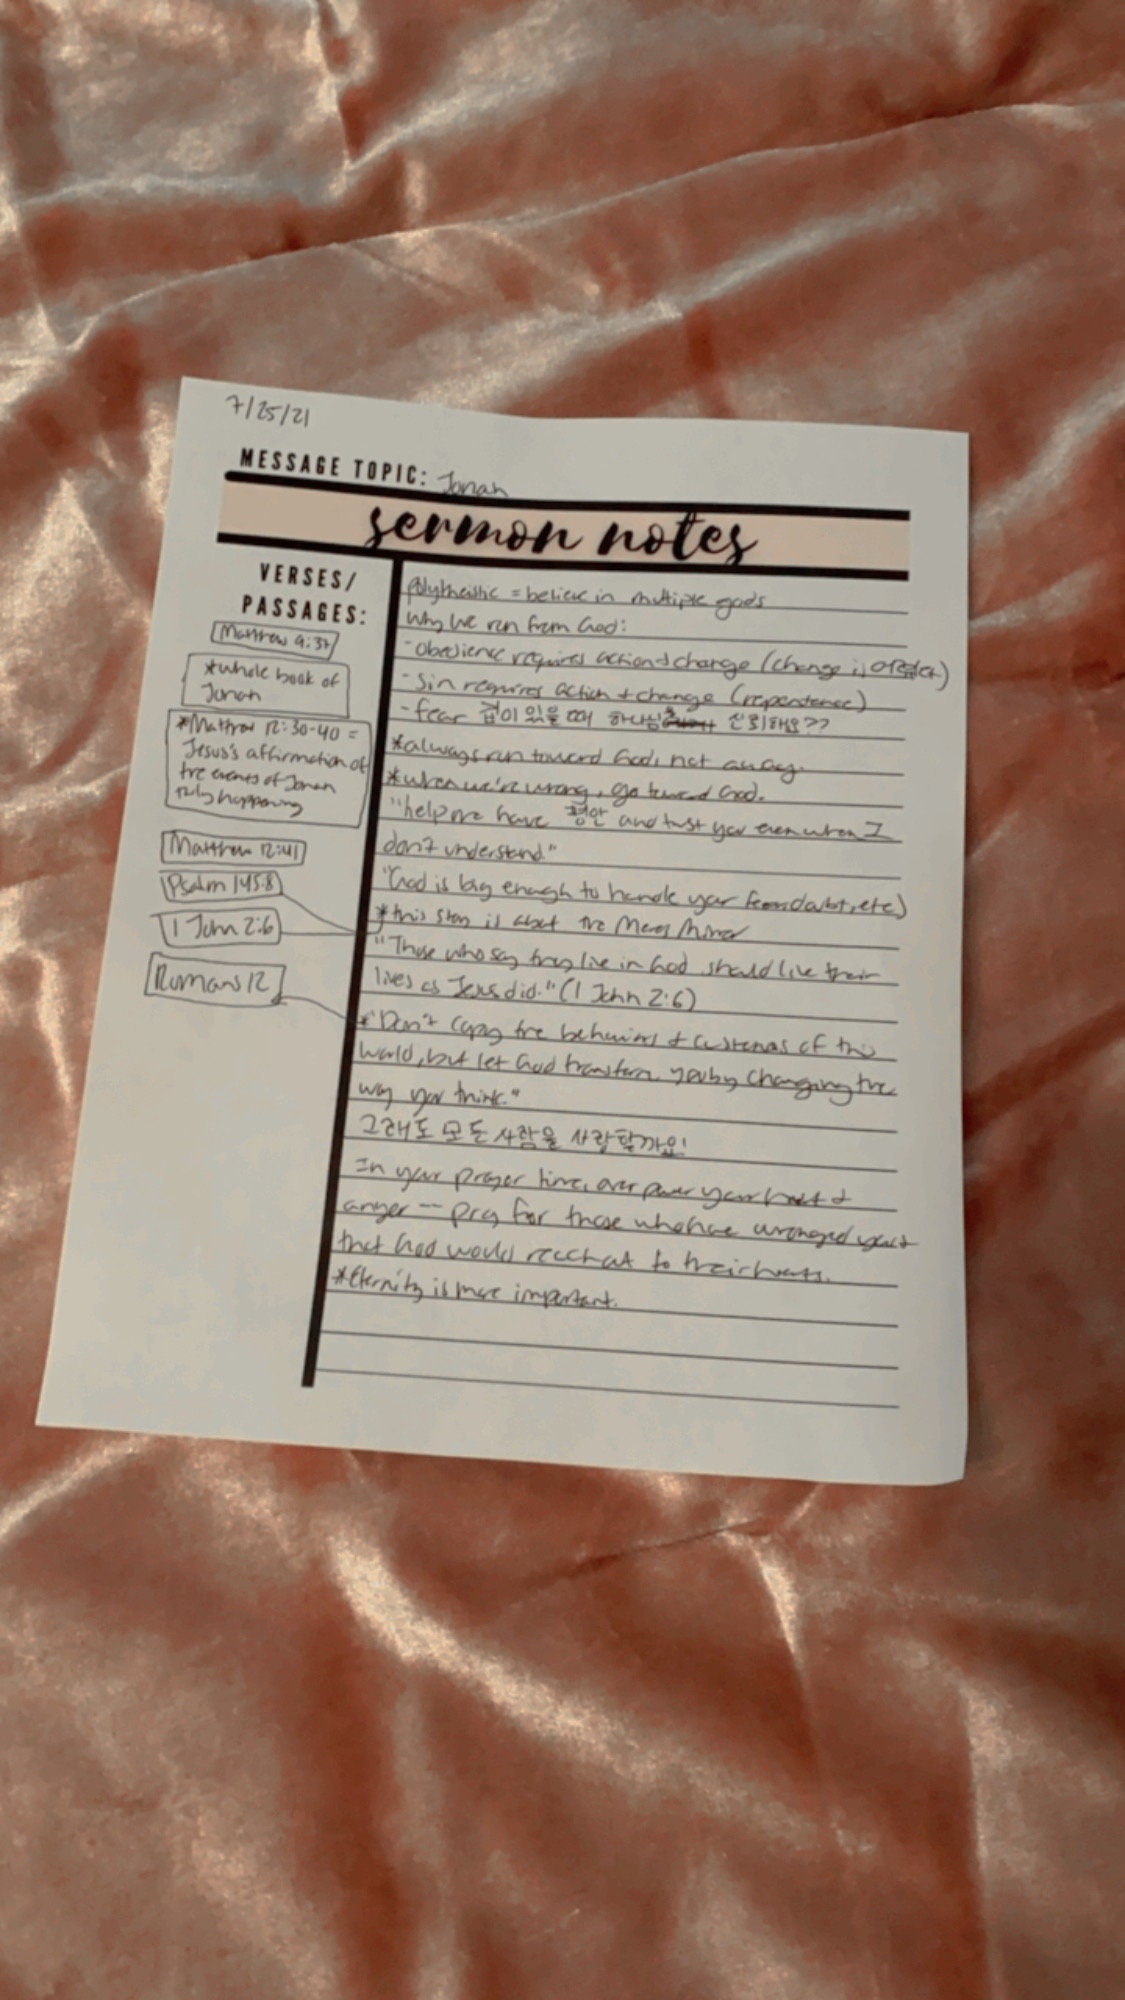 7/25/21
MESSAGE TOPIC: Jonah
sermon notes
VERSES/
PASSAGES:
Matthew 9:37
*whole book of
Jonah
*Matthew 12:30-40 =
Jesus's affirmation of
the events of Jonah
truly happening
Matthew 12:41
Psalm 145:8
1 John 2:6
Romans 12
Polytheistic = believe in multiple gods
Why we run from God:
-obedience requires action + change (change is
-Sin requires action + change (repentance)
-fear 겁이 있을 때 하나님 신뢰해요??
*always run toward God, not away.
*when we're wrong, go toward God.
"help me have 평안 and trust you even when I
don't understand."
"God is big enough to handle your doubt, etc)
*this story is about the
"Those who say they live in God should live their
lives as Jesus did." (1 John 2:6)
*"Don't copy the behaviors + customs of this
world, but let God transform you by changing the
way you think."
그래도 모든 사람을 사랑할까요!
In your prayer time, overpower your hurt +
anger -- pray for those who have wronged you +
that God would reach out to their hearts.
*Eternity is more important.